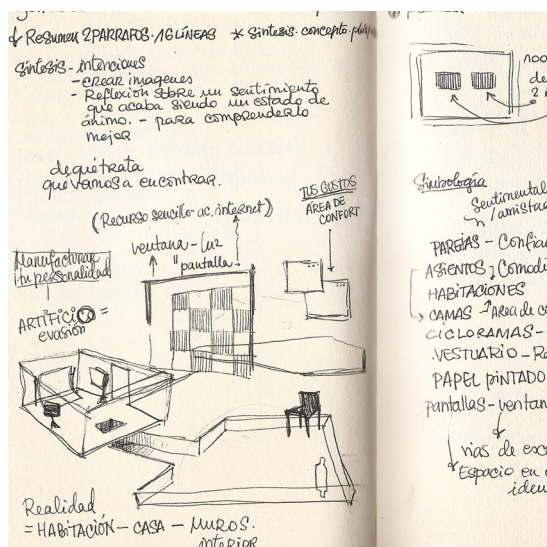 Resumen 2 PARRAFOS. 16 LÍNEAS * Síntesis. concepto.
Síntesis - intenciones
- crear imagenes
- Reflexión sobre un sentimiento
que acaba siendo un estado de
ánimo. - para comprenderlo
mejor
de qué trata
que vamos a encontrar.
(Recurso sencillo - ac. internet)
TUS GUSTOS
ÁREA DE
CONFORT
ventana - luz
"pantalla"
Manufacturar
tu personalidad
ARTIFICIO =
evasión
Realidad
= HABITACIÓN - CASA - MUROS.
interior
de
2
Simbología
Sentimental
/amistad
PAREJAS - Confian
ASIENTOS Comodi
HABITACIONES
CAMAS - Area de c
CICLORAMAS -
VESTUARIO - R
PAPEL PINTADO
Pantallas - ventan
vias de esc
Espacio en
iden